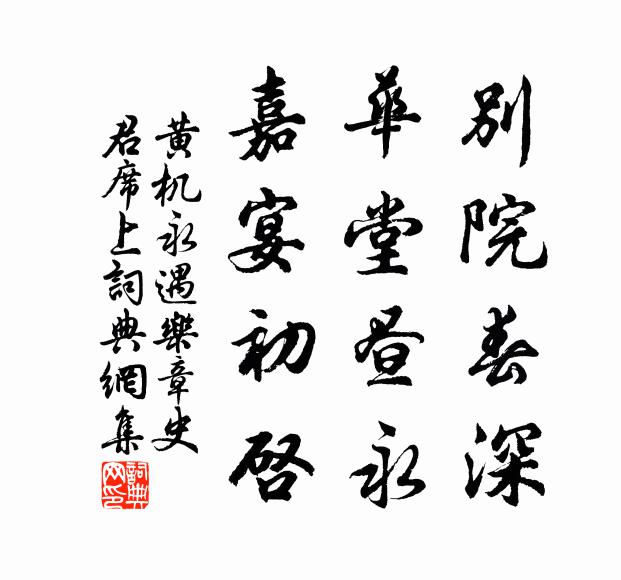 别院春深
華堂昼永
嘉宴初啓
黄机永遇樂章史
君席上詞典網集
詞典网印